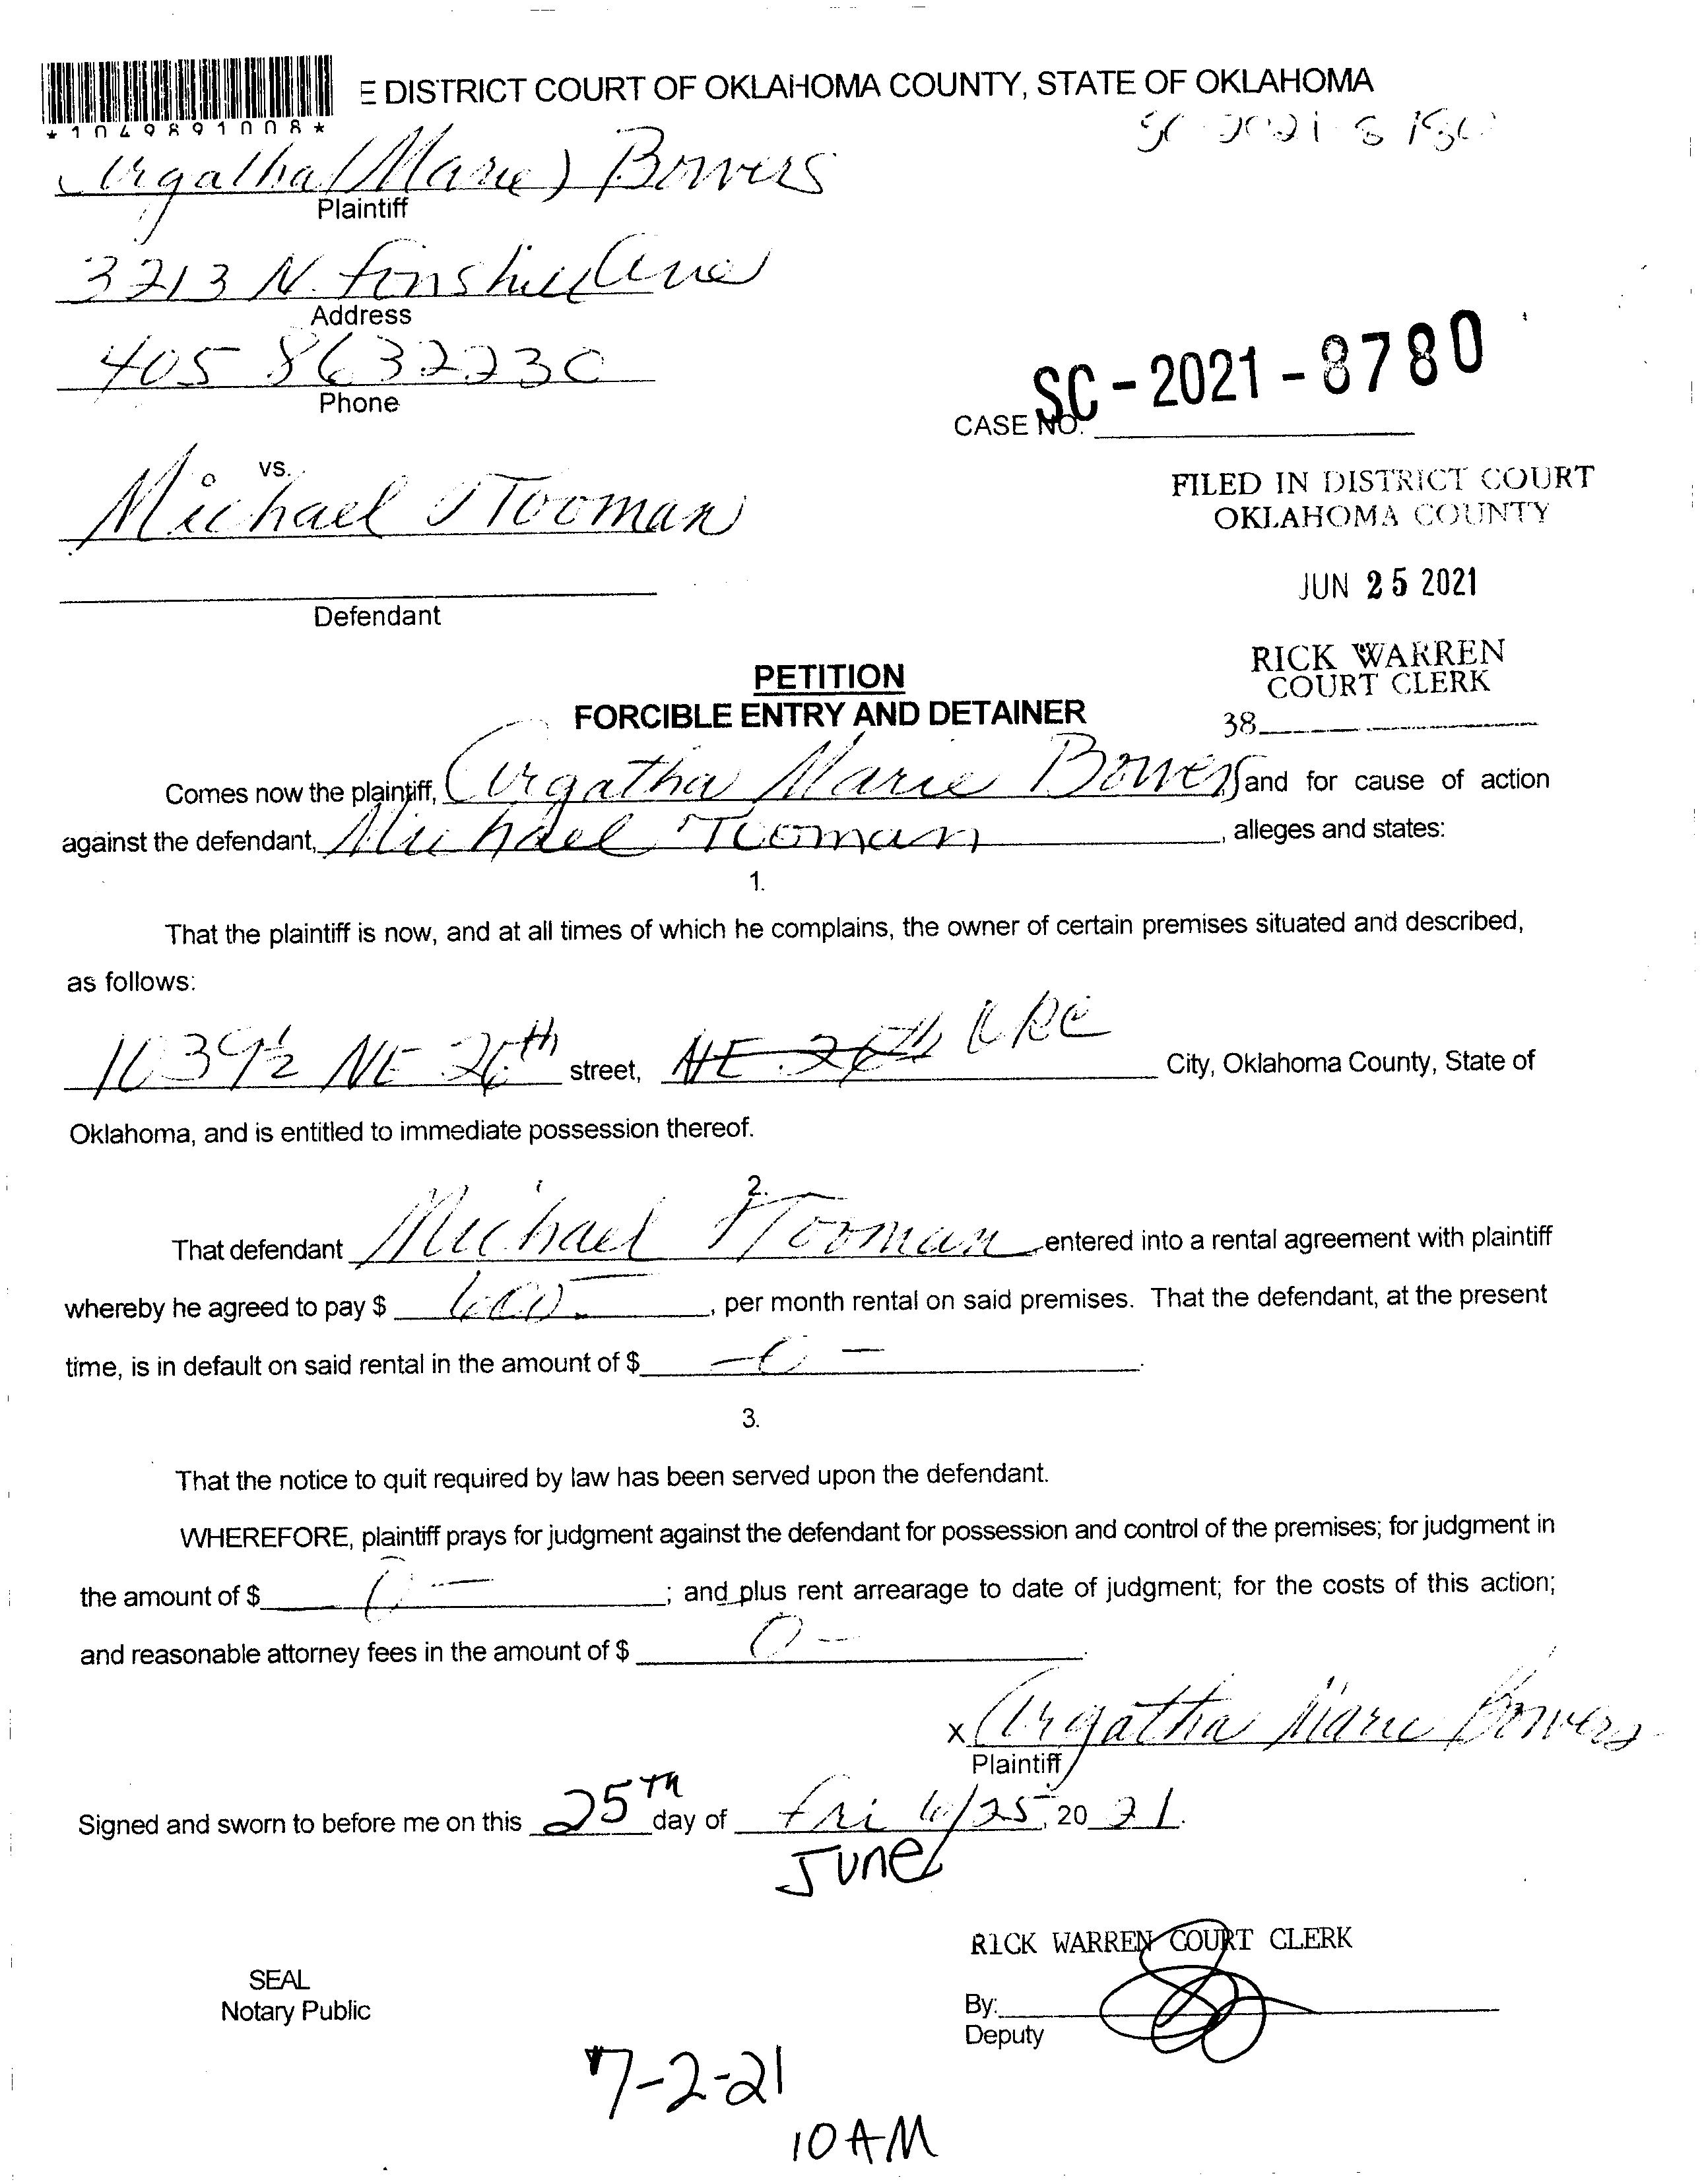 E DISTRICT COURT OF OKLAHOMA COUNTY, STATE OF OKLAHOMA
*1049891008*
Argatha (Marie) Bowers
Plaintiff
3213 N. Ave
Address
405 8632230
Phone
SC-2021-8780
CASE NO.
vs.
Michael Tooman
FILED IN DISTRICT COURT
OKLAHOMA COUNTY
JUN 25 2021
Defendant
RICK WARREN
COURT CLERK
38
PETITION
FORCIBLE ENTRY AND DETAINER
Comes now the plaintiff, Argatha Marie Bowers and for cause of action
against the defendant, Michael Tooman, alleges and states:
1.
That the plaintiff is now, and at all times of which he complains, the owner of certain premises situated and described,
as follows:
1039½ NE 26th street, NE 26th City, Oklahoma County, State of
Oklahoma, and is entitled to immediate possession thereof.
2.
That defendant Michael Tooman entered into a rental agreement with plaintiff
whereby he agreed to pay $ 600.-, per month rental on said premises. That the defendant, at the present
time, is in default on said rental in the amount of $ -0-.
3.
That the notice to quit required by law has been served upon the defendant.
WHEREFORE, plaintiff prays for judgment against the defendant for possession and control of the premises; for judgment in
the amount of $ 0-; and plus rent arrearage to date of judgment; for the costs of this action;
and reasonable attorney fees in the amount of $ 0-.
x Argatha Marie Bowers
Plaintiff
Signed and sworn to before me on this 25TH day of Fri 6/25, 2021.
June
RICK WARREN COURT CLERK
SEAL
Notary Public
By:
Deputy
7-2-21
10 AM